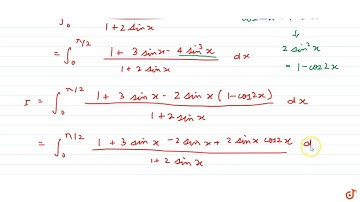 ∫₀ 1+2 sinx
= ∫₀^(π/2) (1 + 3 sinx - 4 sin³x)/(1+2 sinx) dx
2 sin²x
= 1-cos2x
I = ∫₀^(π/2) (1 + 3 sinx - 2 sinx (1-cos2x))/(1+2 sinx) dx
= ∫₀^(π/2) (1 + 3 sinx - 2 sinx + 2 sinx cos2x)/(1+2 sinx) d